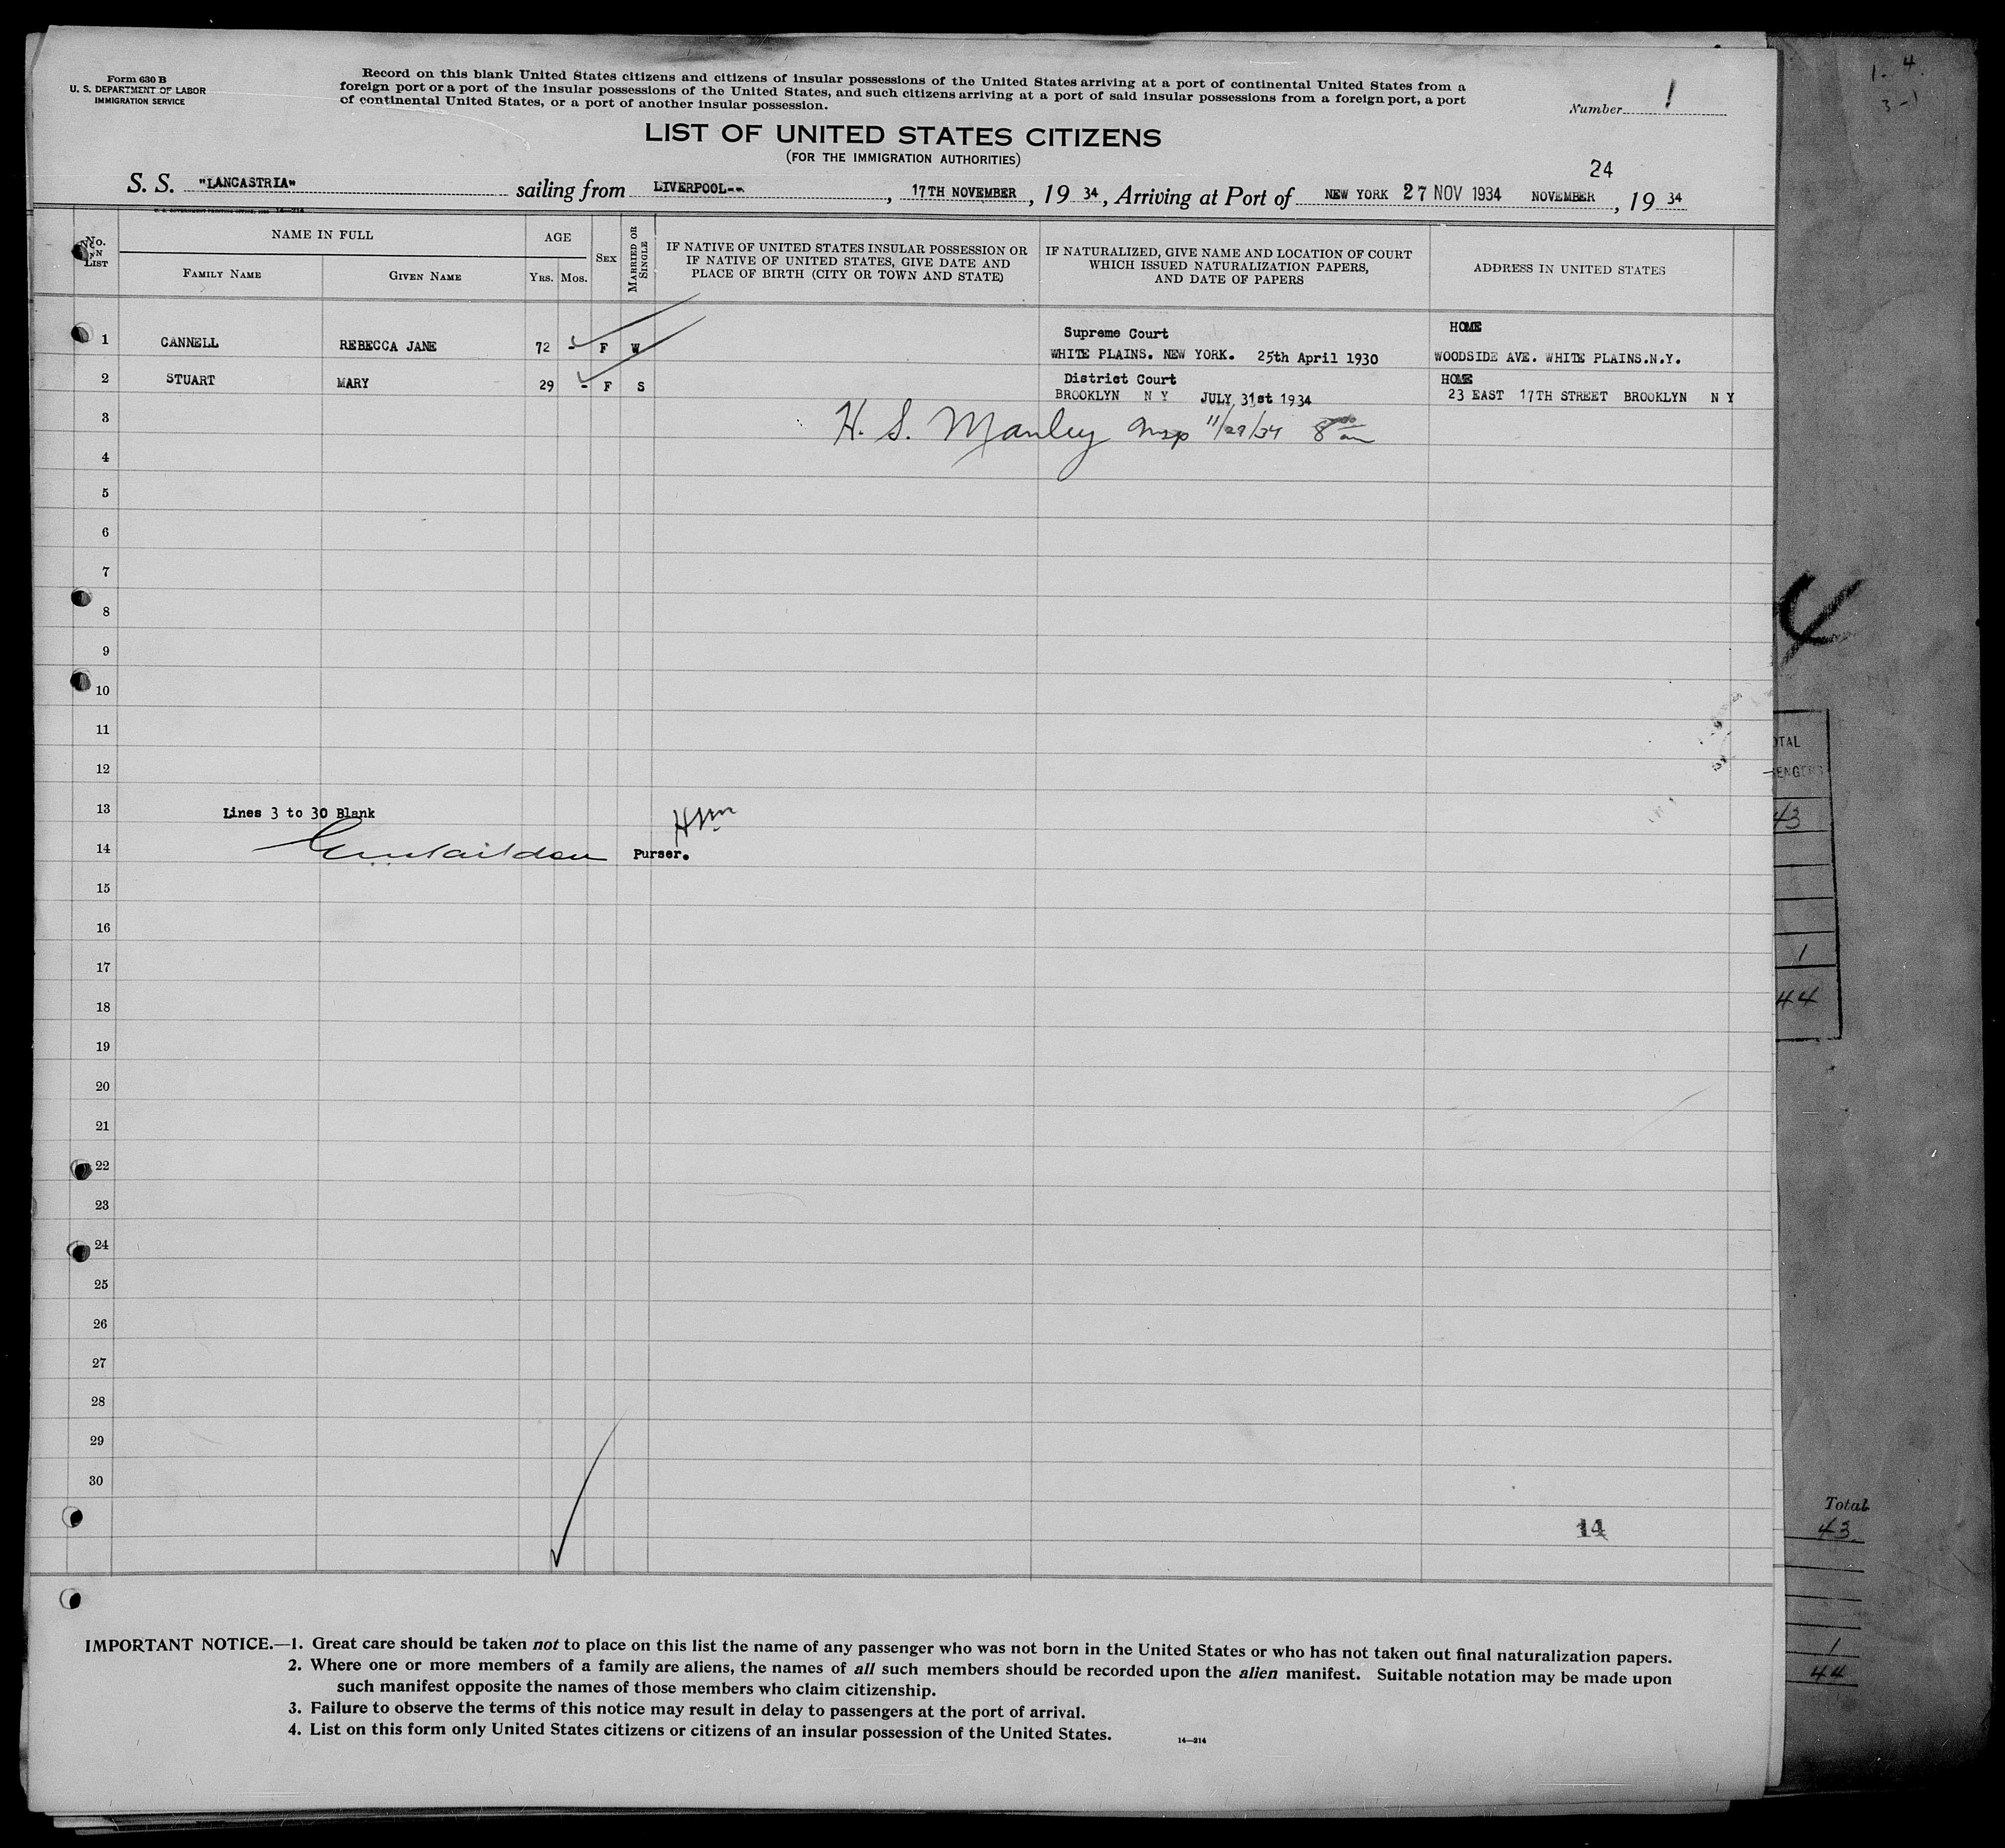 Form 630 B
U. S. DEPARTMENT OF LABOR
IMMIGRATION SERVICE
Record on this blank United States citizens and citizens of insular possessions of the United States arriving at a port of continental United States from a
foreign port or a port of the insular possessions of the United States, and such citizens arriving at a port of said insular possessions from a foreign port, a port
of continental United States, or a port of another insular possession.
Number 1
1. 4.
3-1
LIST OF UNITED STATES CITIZENS
(FOR THE IMMIGRATION AUTHORITIES)
24
S. S. "LANCASTRIA" sailing from LIVERPOOL-- , 17TH NOVEMBER , 19 34 , Arriving at Port of NEW YORK 27 NOV 1934 NOVEMBER , 19 34
No. IN LIST
NAME IN FULL
FAMILY NAME
GIVEN NAME
AGE
YRS. MOS.
SEX
MARRIED OR SINGLE
IF NATIVE OF UNITED STATES INSULAR POSSESSION OR
IF NATIVE OF UNITED STATES, GIVE DATE AND
PLACE OF BIRTH (CITY OR TOWN AND STATE)
IF NATURALIZED, GIVE NAME AND LOCATION OF COURT
WHICH ISSUED NATURALIZATION PAPERS,
AND DATE OF PAPERS
ADDRESS IN UNITED STATES
1 CANNELL REBECCA JANE 72 - F W Supreme Court WHITE PLAINS. NEW YORK. 25th April 1930 HOME WOODSIDE AVE. WHITE PLAINS.N.Y.
2 STUART MARY 29 - F S District Court BROOKLYN N Y JULY 31st 1934 HOME 23 EAST 17TH STREET BROOKLYN N Y
3 H. S. Manley Insp 11/27/34 8 00 am
4
5
6
7
8
9
10
11
12
13 Lines 3 to 30 Blank HSM
14 Purser.
15
16
17
18
19
20
21
22
23
24
25
26
27
28
29
30
14
IMPORTANT NOTICE.—1. Great care should be taken not to place on this list the name of any passenger who was not born in the United States or who has not taken out final naturalization papers.
2. Where one or more members of a family are aliens, the names of all such members should be recorded upon the alien manifest. Suitable notation may be made upon
such manifest opposite the names of those members who claim citizenship.
3. Failure to observe the terms of this notice may result in delay to passengers at the port of arrival.
4. List on this form only United States citizens or citizens of an insular possession of the United States.
14—214
4
43
1
44
Total
43
1
44